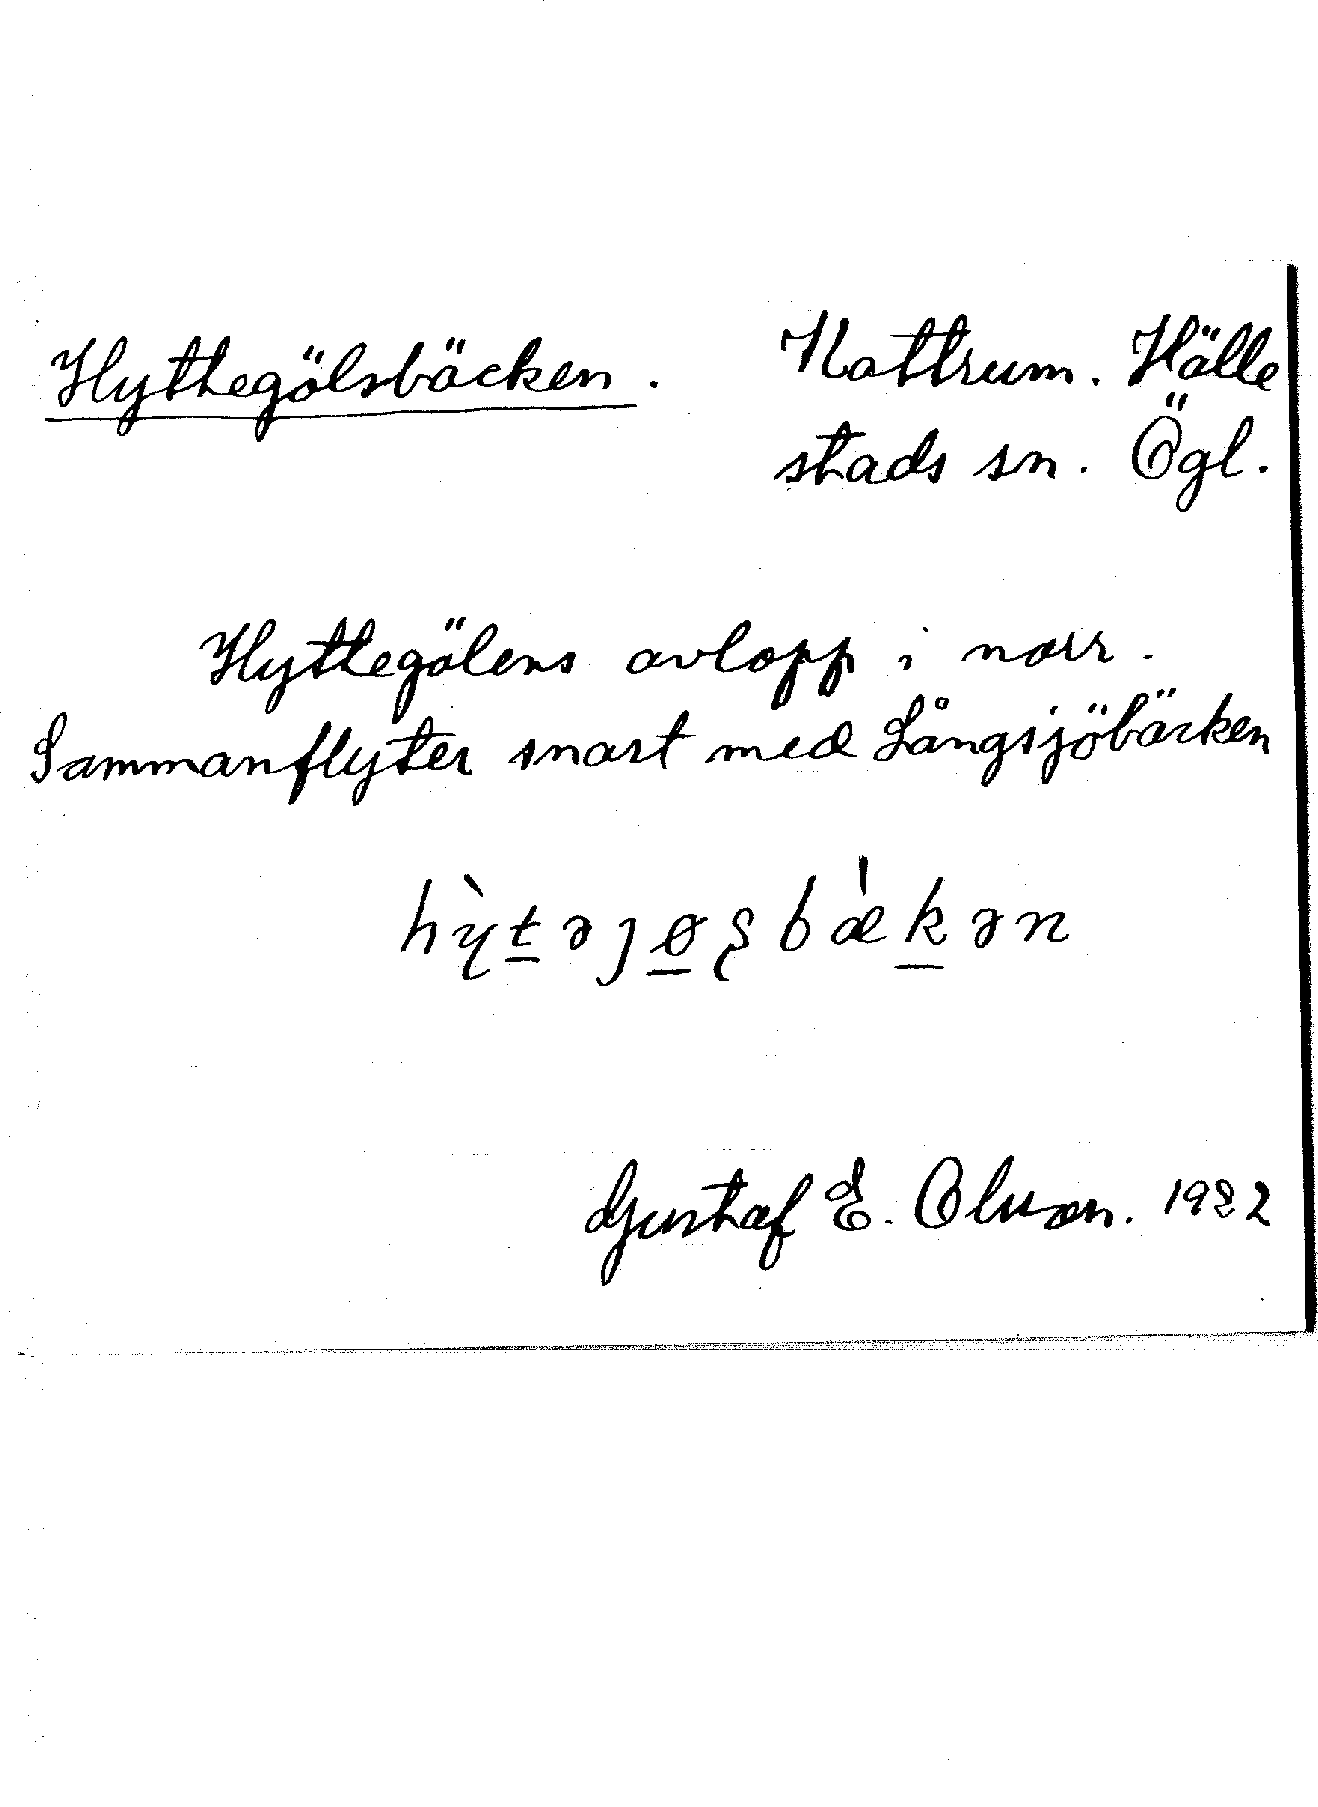 Hyttegölsbäcken. Kattrum. Hälle
stads sn. Ögl.
Hyttegölens avlopp i norr.
Sammanflyter snart med Långsjöbäcken
hỳt̲əȷø̲ʂbæ̀k̲ən
Gustaf E. Olsson. 1922